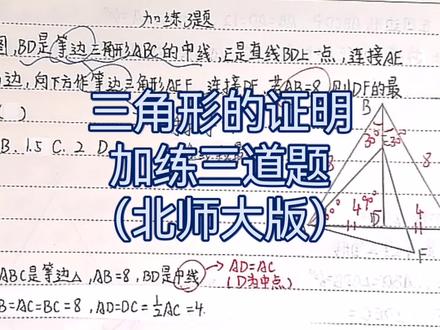 加练3题
图,BD是等边三角形ABC的中线,E是直线BD上一点,连接AE
边,向下方作等边三角形AEF,连接DF,若AB=8,则DF的最
三角形的证明
加练三道题
(北师大版)
B. 1.5 C. 2 D.
B
30° 30°
8
4 4
D
F
ABC是等边△,AB=8,BD是中线 → AD=AC
(D为中点)
B=AC=BC=8,AD=DC=½AC=4.